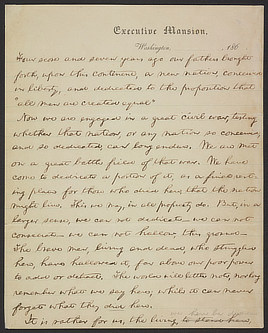 Executive Mansion,
Washington, 186
Four score and seven years ago our fathers brought
forth, upon this continent, a new nation, conceived
in liberty, and dedicated to the proposition that
"all men are created equal"
Now we are engaged in a great civil war, testing
whether that nation, or any nation so conceived,
and so dedicated, can long endure. We are met
on a great battle field of that war. We have
come to dedicate a portion of it, as a final rest-
ing place for those who died here, that the nation
might live. This we may, in all propriety do. But, in a
larger sense, we can not dedicate — we can not
consecrate — we can not hallow, this ground—
The brave men, living and dead, who struggled
here, have hallowed it, far above our poor power
to add or detract. The world will little note, nor long
remember what we say here; while it can never
forget what they did here.
It is rather for us, the living, to stand here,